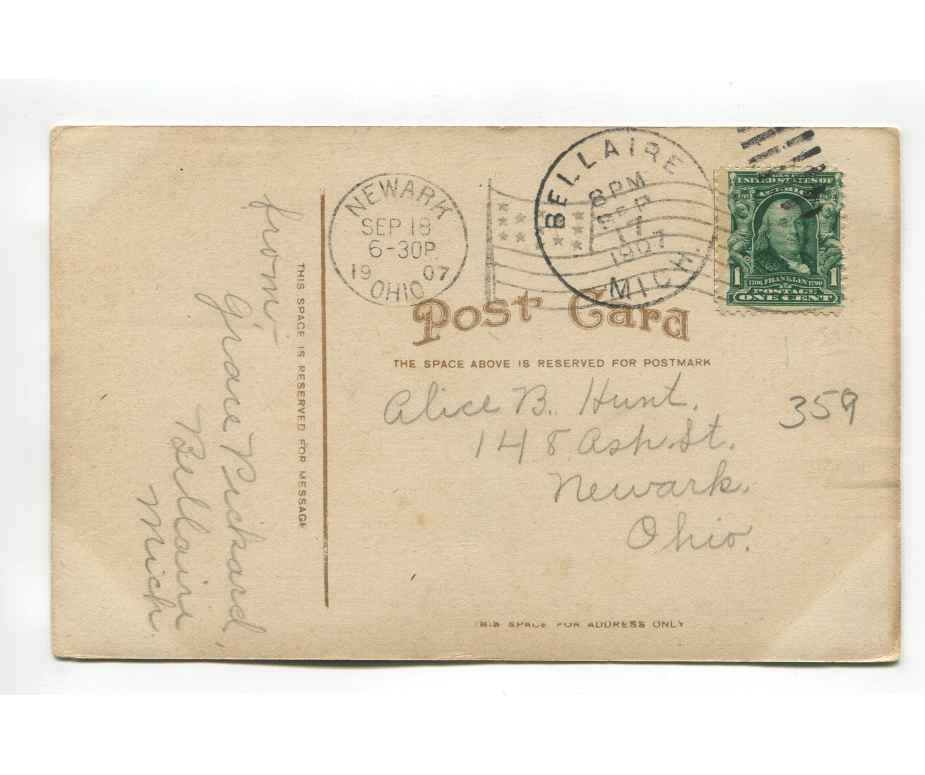 from,
Grace Pickard,
Bellaire
Mich.
THIS SPACE IS RESERVED FOR MESSAGE
NEWARK
SEP 18
6-30P
19 07
OHIO
BELLAIRE
8 PM
SEP
17
1907
MICH.
UNITED STATES OF
AMERICA
1 FRANKLIN 1
POSTAGE
ONE CENT
Post Card
THE SPACE ABOVE IS RESERVED FOR POSTMARK
Alice B. Hunt.
148 Ash. St.
Newark.
Ohio.
359
THIS SPACE FOR ADDRESS ONLY